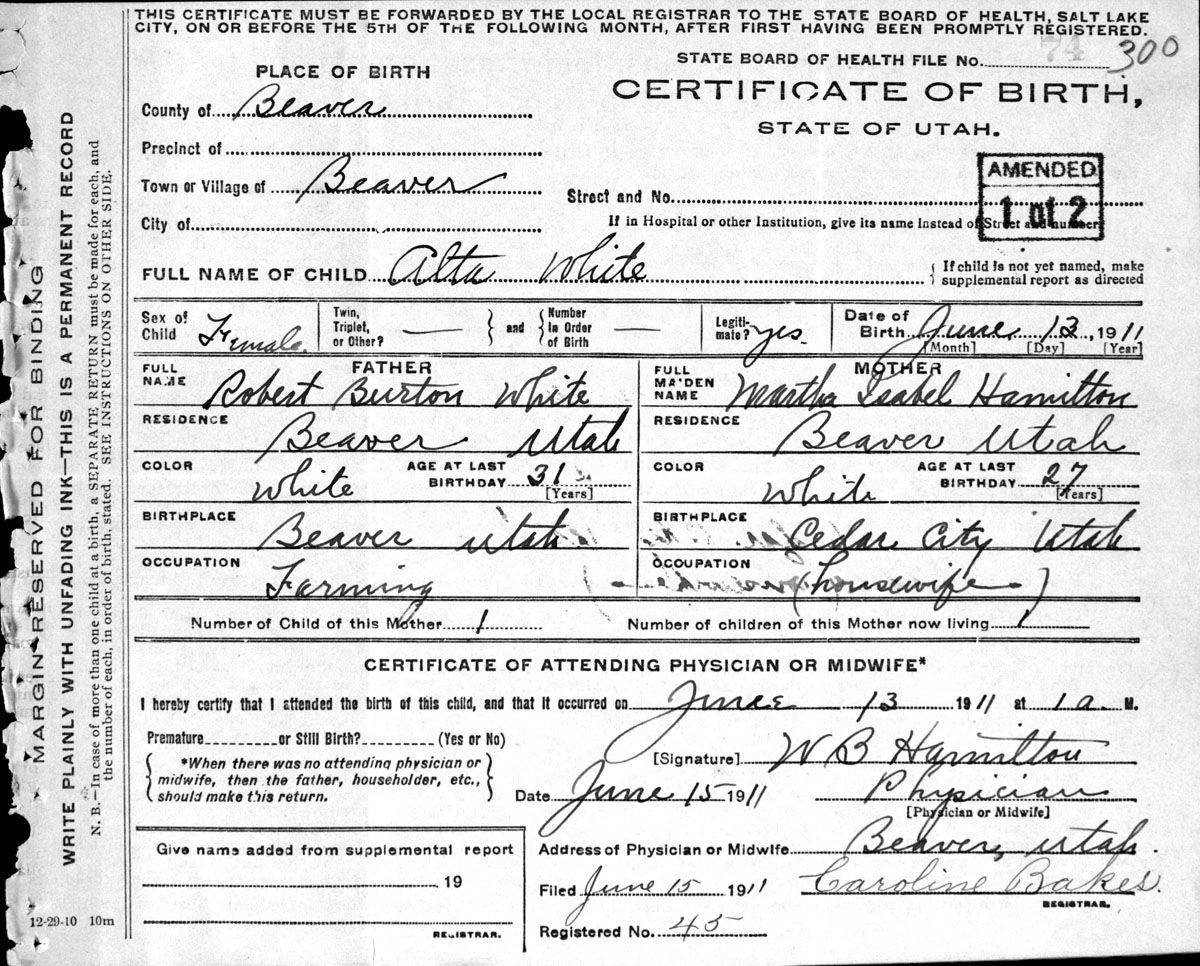 THIS CERTIFICATE MUST BE FORWARDED BY THE LOCAL REGISTRAR TO THE STATE BOARD OF HEALTH, SALT LAKE
CITY, ON OR BEFORE THE 5TH OF THE FOLLOWING MONTH, AFTER FIRST HAVING BEEN PROMPTLY REGISTERED.
74 300
STATE BOARD OF HEALTH FILE No.
PLACE OF BIRTH
CERTIFICATE OF BIRTH,
STATE OF UTAH.
County of Beaver
Precinct of
Town or Village of Beaver
Street and No.
AMENDED
1 of 2
City of
If in Hospital or other Institution, give its name instead of Street and number
FULL NAME OF CHILD Alta White
{ If child is not yet named, make
supplemental report as directed
Sex of Child Female
Twin, Triplet, or Other? —
and
Number In Order of Birth —
Legitimate? yes
Date of Birth June 13, 1911
[Month] [Day] [Year]
FATHER
FULL NAME Robert Burton White
MOTHER
FULL MAIDEN NAME Martha Isabel Hamilton
RESIDENCE Beaver Utah
RESIDENCE Beaver Utah
COLOR White
AGE AT LAST BIRTHDAY 31 [Years]
COLOR White
AGE AT LAST BIRTHDAY 27 [Years]
BIRTHPLACE Beaver Utah
BIRTHPLACE Cedar City Utah
OCCUPATION Farming
OCCUPATION (housewife)
Number of Child of this Mother 1
Number of children of this Mother now living 1
CERTIFICATE OF ATTENDING PHYSICIAN OR MIDWIFE*
I hereby certify that I attended the birth of this child, and that it occurred on June 13 1911 at 1 a. M.
Premature or Still Birth? (Yes or No)
*When there was no attending physician or
midwife, then the father, householder, etc.,
should make this return.
[Signature] W B Hamilton
Date June 15 1911
Physician
[Physician or Midwife]
Give name added from supplemental report
19
REGISTRAR.
Address of Physician or Midwife Beaver, Utah.
Filed June 15 1911
Caroline Bakes.
REGISTRAR.
Registered No. 45
12-29-10 10m
MARGIN RESERVED FOR BINDING
WRITE PLAINLY WITH UNFADING INK—THIS IS A PERMANENT RECORD
N. B.—In case of more than one child at a birth, a SEPARATE RETURN must be made for each, and
the number of each, in order of birth, stated. SEE INSTRUCTIONS ON OTHER SIDE.